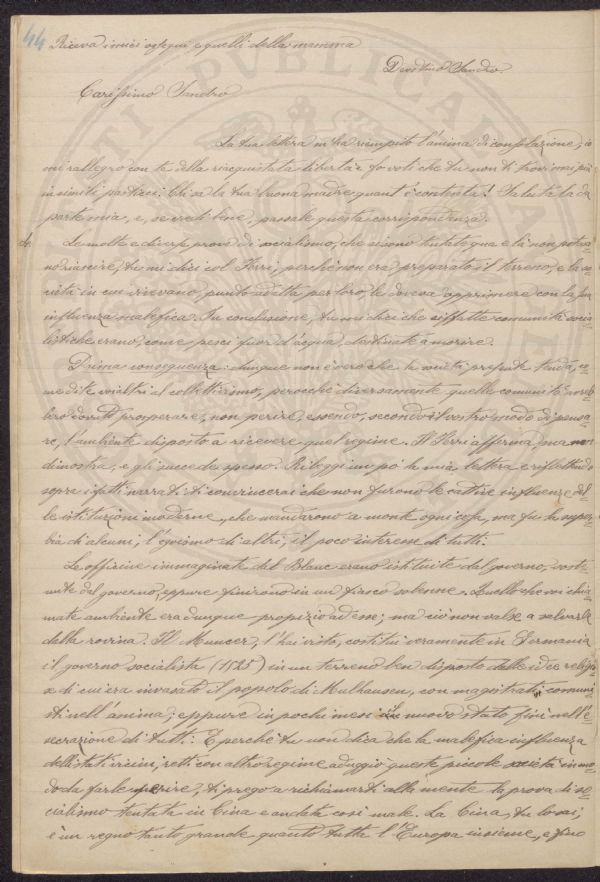 44 Riceva i miei ossequi e quelli della mamma
Devotmo Sandro.
Carissimo Sandro
La tua lettera m'ha riempito l'anima di consolazione; io
mi rallegro con te della riacquistata libertà e fo voti che tu non ti trovi mai più
in simili pasticci. Chi sa la tua buona madre quant'è contenta! Saluta la da
parte mia, e, se credi bene, passale questa corrispondenza.
Le molte e diverse prove di socialismo, che si sono tentate qua e là non poteva
no riuscire, tu mi dici col Ferri, perchè non era preparato il terreno, e la so
cietà in cui vivevano, punto adatta per loro, le doveva opprimere con la sua
influenza malefica. In conclusione, tu mi dici che siffatte comunità socia
listiche erano, come pesci fuor d'acqua, destinate a morire.
Prima conseguenza: dunque non è vero che la società presente tenda, co
me dite voialtri al collettivismo, perocchè diversamente quelle comunità avreb
bero dovuto prosperare, non perire, essendo, secondo il vostro modo di pensa
re, l'ambiente disposto a ricevere quel regime. Il Ferri afferma, ma non
dimostra, e gli succede spesso. Rileggi un po' la mia lettera e riflettendo
sopra i fatti narrati ti convincerai che non furono le cattive influenze del
le istituzioni moderne, che mandarono a monte ogni cosa, ma fu la super
bia di alcuni, l'egoismo di altri, il poco interesse di tutti.
Le officine immaginate dal Blanc erano istituite dal governo, soste
nute dal governo, eppure finirono in un fiasco solenne. Quello che voi chia
mate ambiente era dunque propizio ad esse; ma ciò non valse a salvarle
dalla rovina. Il Muncer, l'hai visto, costituì veramente in Germania
il governo socialista (1525) in un terreno ben disposto dalle idee religio
se di cui era invasato il popolo di Mulhausen, con magistrati comuni
sti nell'anima; eppure in pochi mesi il nuovo stato finì nell'e
secrazione di tutti. E perchè tu non dica che la malefica influenza
degli stati vicini, retti con altro regime aduggiò queste piccole società in mo
do da farle perire, ti prego a richiamarti alla mente la prova di so
cialismo tentata in Cina e andata così male. La Cina, tu lo sai,
è un regno tanto grande quanto tutta l'Europa insieme, e fino